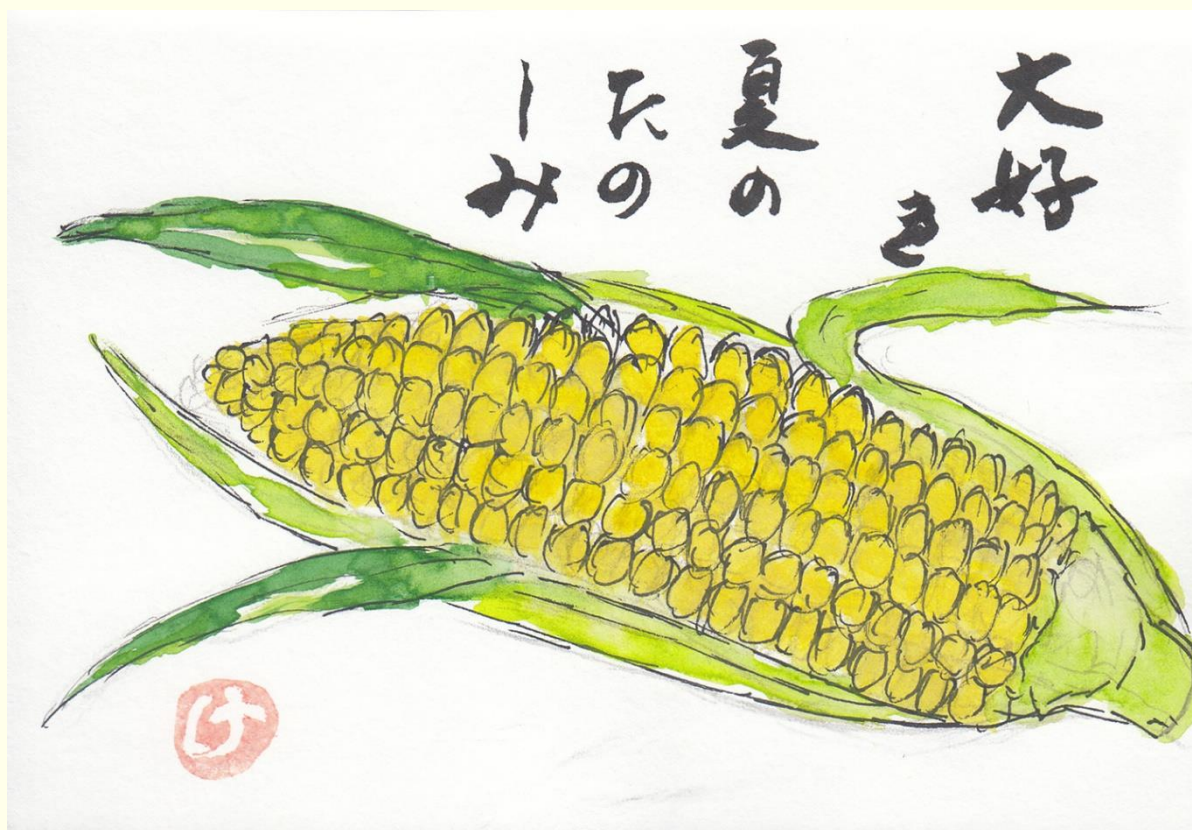 大好き
夏の
たの
しみ
け